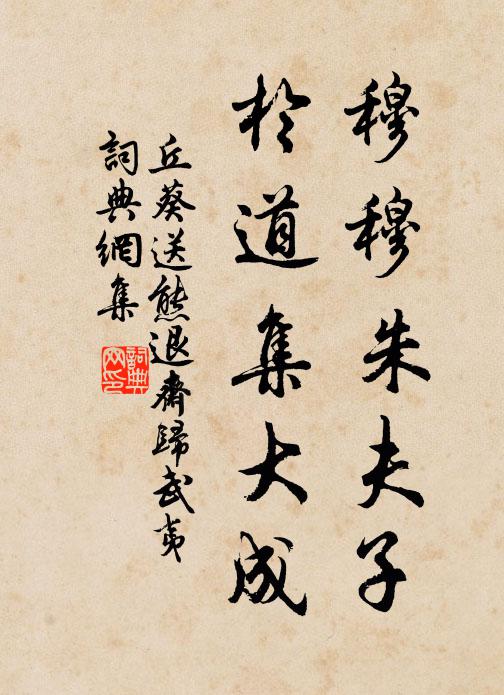 穆穆朱夫子
於道集大成
丘葵送熊退齋歸武夷
詞典網集
詞典網印